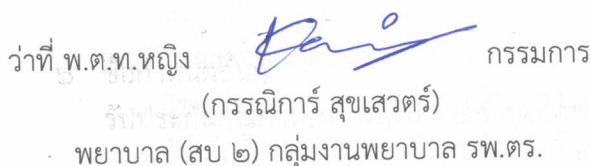 ว่าที่ พ.ต.ท.หญิง กรรมการ
(กรรณิการ์ สุขเสวตร์)
พยาบาล (สบ ๒) กลุ่มงานพยาบาล รพ.ตร.